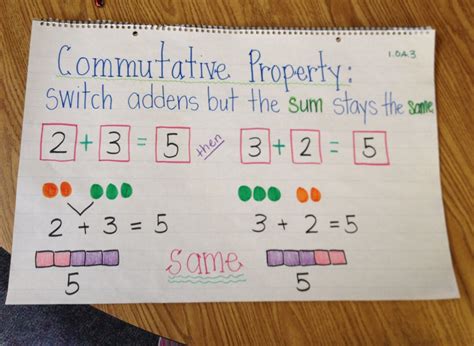 Commutative Property:
1.OA.3
switch addens but the sum stays the same
2 + 3 = 5 then 3 + 2 = 5
2 + 3 = 5 3 + 2 = 5
same
5 5